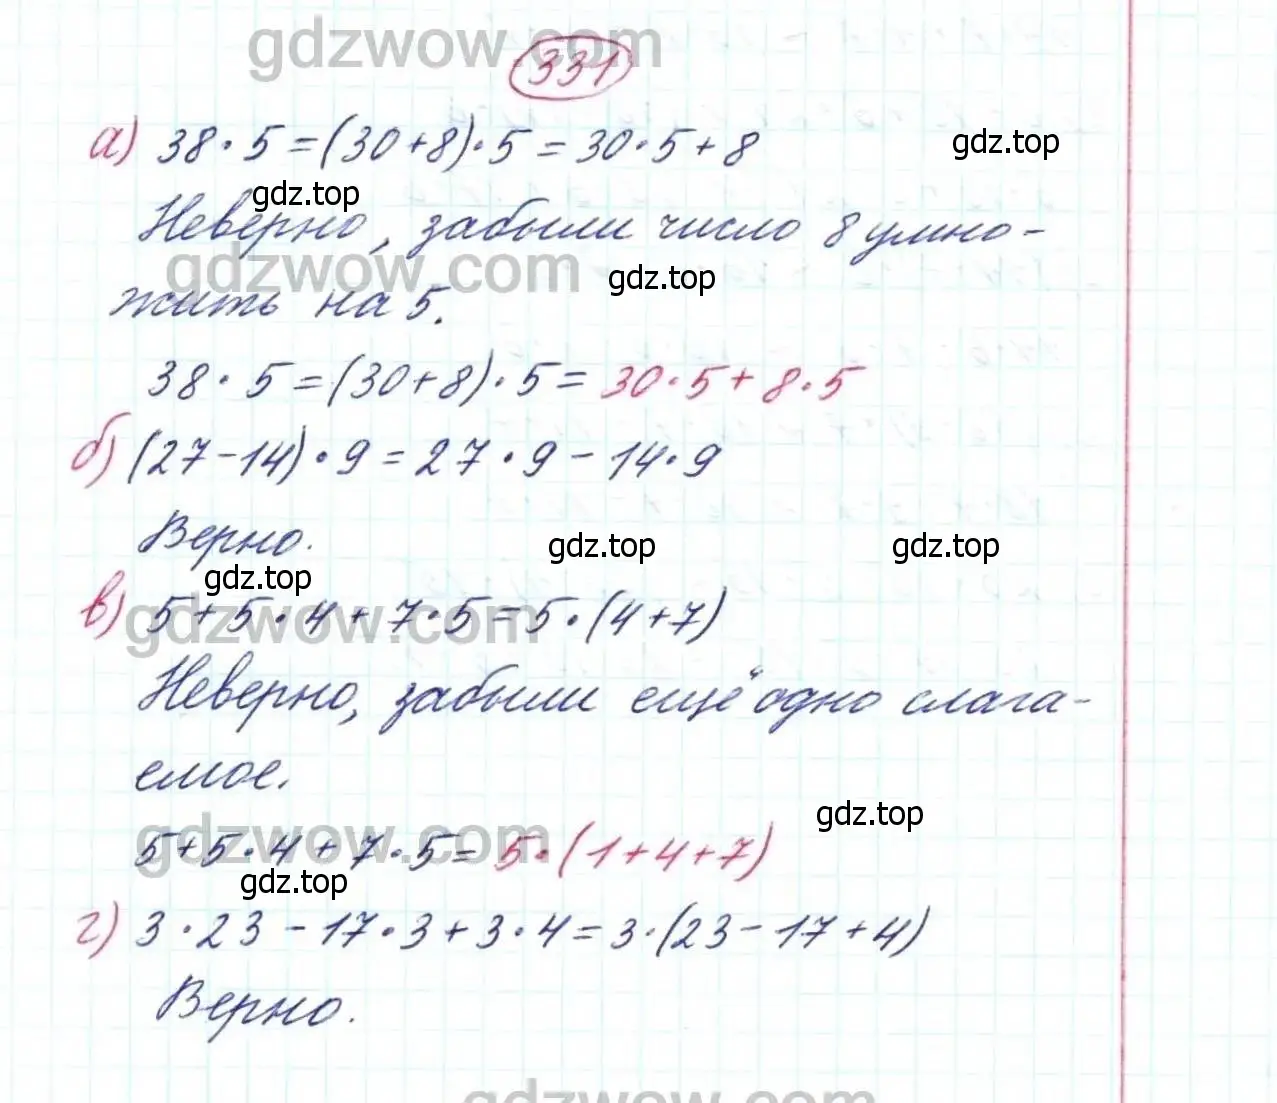 gdzwow.com
331
а) 38·5=(30+8)·5=30·5+8
gdz.top
gdz.top
Неверно, забыли число 8 умно-
gdzwow.com
gdz.top
жить на 5.
38·5=(30+8)·5=30·5+8·5
б) (27-14)·9=27·9-14·9
Верно.
gdz.top
gdz.top
gdz.top
в) 5+5·4+7·5=5·(4+7)
gdzwow.com
Неверно, забыли ещё одно слага-
емое.
gdz.top
gdzwow.com
5+5·4+7·5=5·(1+4+7)
gdz.top
г) 3·23-17·3+3·4=3·(23-17+4)
Верно.
gdzwow.com